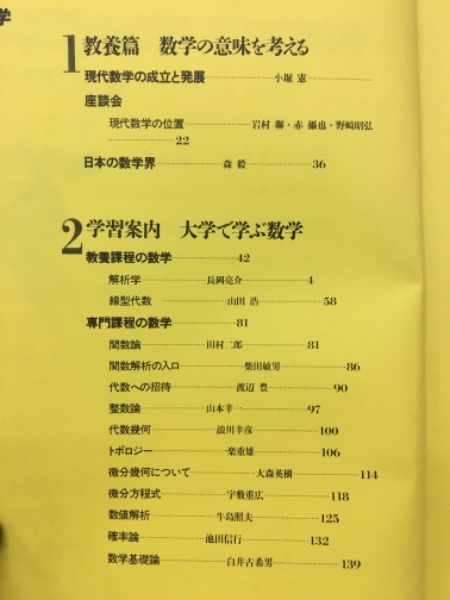 学
1 教養篇 数学の意味を考える
現代数学の成立と発展 小堀 憲
座談会
現代数学の位置 岩村 聯・赤 攝也・野崎昭弘
22
日本の数学界 森 毅 36
2 学習案内 大学で学ぶ数学
教養課程の数学 42
解析学 長岡亮介 4
線型代数 山田 浩 58
専門課程の数学 81
関数論 田村二郎 81
関数解析の入口 柴田敏男 86
代数への招待 渡辺 豊 90
整数論 山本幸一 97
代数幾何 浪川幸彦 100
トポロジー 楽重雄 106
微分幾何について 大森英樹 114
微分方程式 宇敷重広 118
数値解析 牛島照夫 125
確率論 池田信行 132
数学基礎論 白井古希男 139